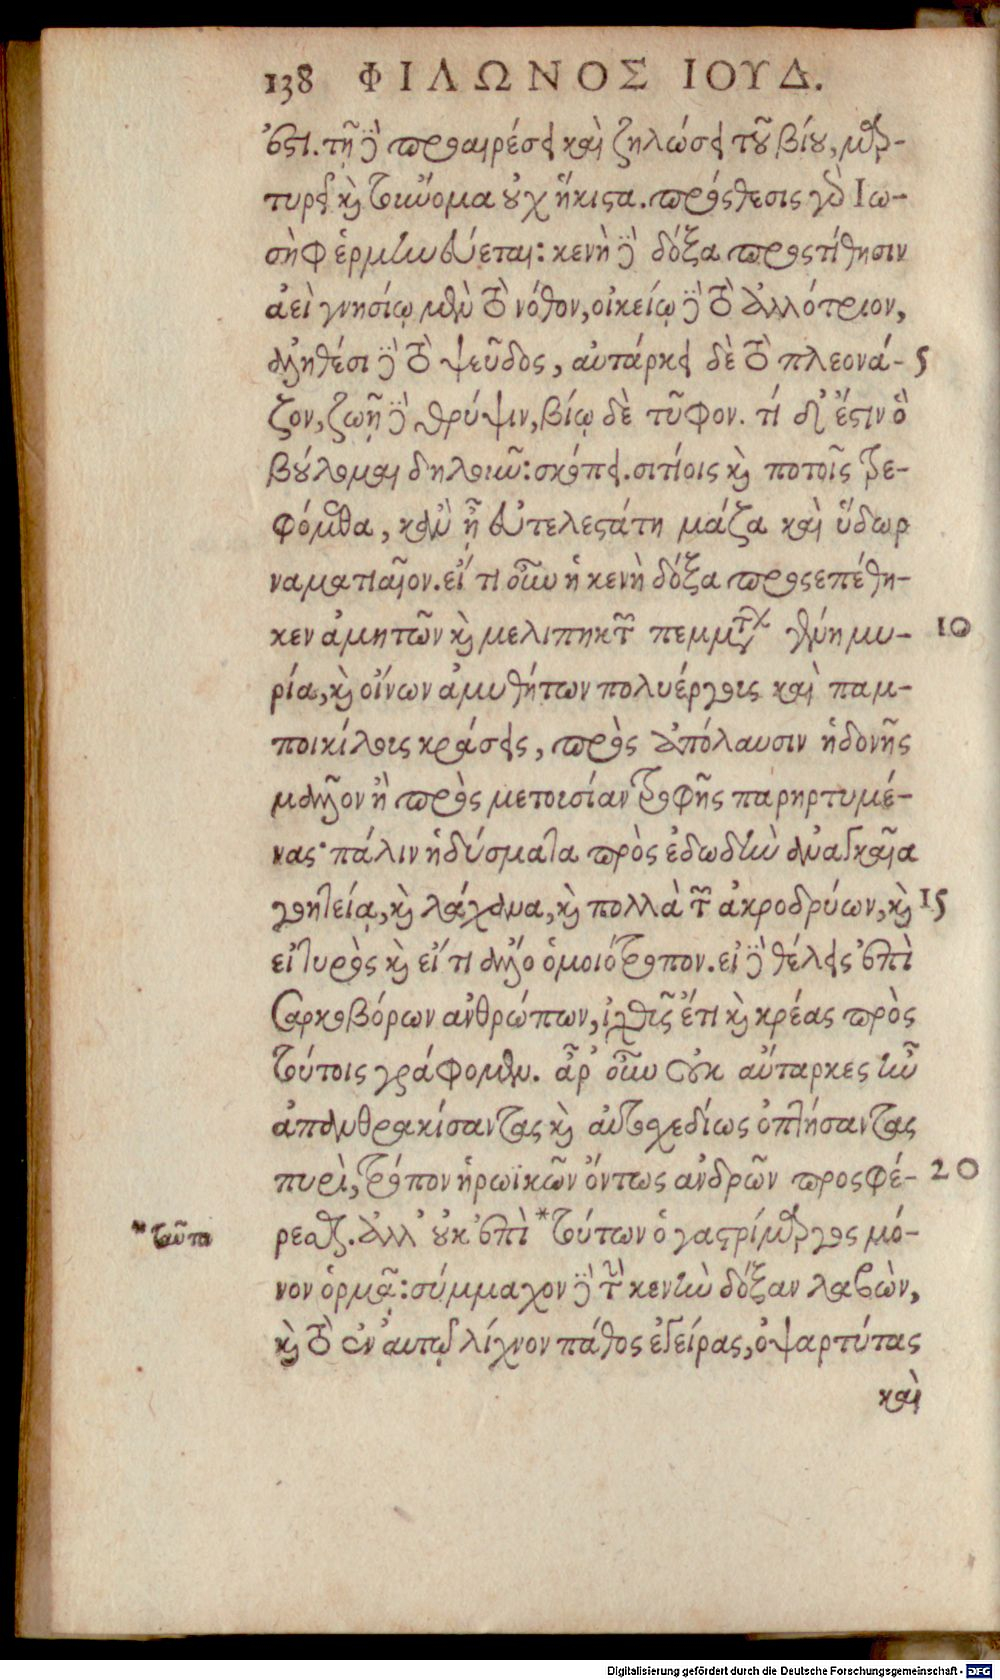 138 ΦΙΛΩΝΟΣ ΙΟΥΔ.
ἐστι. τῇ δὲ προαιρέσει καὶ ζηλώσει τοῦ βίου, μαρ-
τυρεῖ καὶ τοὔνομα οὐχ ἥκιστα. πρόσθεσις γὰρ Ἰω-
σὴφ ἑρμηνεύεται: κενὴ δὲ δόξα προστίθησιν
ἀεὶ γνησίῳ μὲν τὸ νόθον, οἰκείῳ δὲ τὸ ἀλλότριον,
ἀληθέσι δὲ τὸ ψεῦδος, αὐτάρκει δὲ τὸ πλεονά- 5
ζον, ζωῇ δὲ θρύψιν, βίῳ δὲ τῦφον. τί δ' ἔστιν ὃ
βούλομαι δηλοῦν: σκόπει. σιτίοις καὶ ποτοῖς τρε-
φόμεθα, κἂν ᾖ εὐτελεστάτη μάζα καὶ ὕδωρ
ναματιαῖον. εἴ τι οὖν ἡ κενὴ δόξα προσεπέθη-
κεν ἀμητῶν καὶ μελιπηκτῶν πεμμάτων γένη μυ- 10
ρία, καὶ οἴνων ἀμυθήτων πολυέργοις καὶ παμ-
ποικίλοις κράσεις, πρὸς ἀπόλαυσιν ἡδονῆς
μᾶλλον ἢ πρὸς μετουσίαν τροφῆς παρηρτυμέ-
νας· πάλιν ἡδύσματα πρὸς ἐδωδὴν ἀναγκαῖα
γητεία, καὶ λάχανα, καὶ πολλὰ τῶν ἀκροδρύων, καὶ 15
ἔτι τυρὸς καὶ εἴ τι ἄλλο ὁμοιότροπον. εἰ δὲ θέλεις ἐπὶ
σαρκοβόρων ἀνθρώπων, ἰχθῦς ἔτι καὶ κρέας πρὸς
τούτοις γράφομεν. ἆρ' οὖν οὐκ αὔταρκες ἦν
ἀπανθρακίσαντας καὶ αὐτοσχεδίως ὀπτήσαντας
πυρὶ, τρόπον ἡρωϊκῶν ὄντως ἀνδρῶν προσφέ- 20
ρεσθαι. ἀλλ' οὐκ ἐπὶ *τούτων ὁ γαστρίμαργος μό-
*ταῦτα
νον ὁρμᾷ: σύμμαχον δὲ τὴν κενὴν δόξαν λαβὼν,
καὶ τὸ ἐν αὐτῷ λίχνον πάθος ἐγείρας, ὀψαρτύτας
καὶ
Digitalisierung gefördert durch die Deutsche Forschungsgemeinschaft - DFG